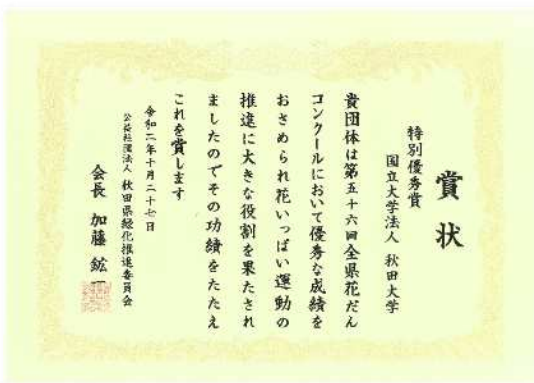 賞状
特別優秀賞
国立大学法人 秋田大学
貴団体は第五十六回全県花だん
コンクールにおいて優秀な成績を
おさめられ花いっぱい運動の
推進に大きな役割を果たされ
ましたのでその功績をたたえ
これを賞します
令和二年十月二十七日
公益社団法人 秋田県緑化推進委員会
会長 加藤 鉱一